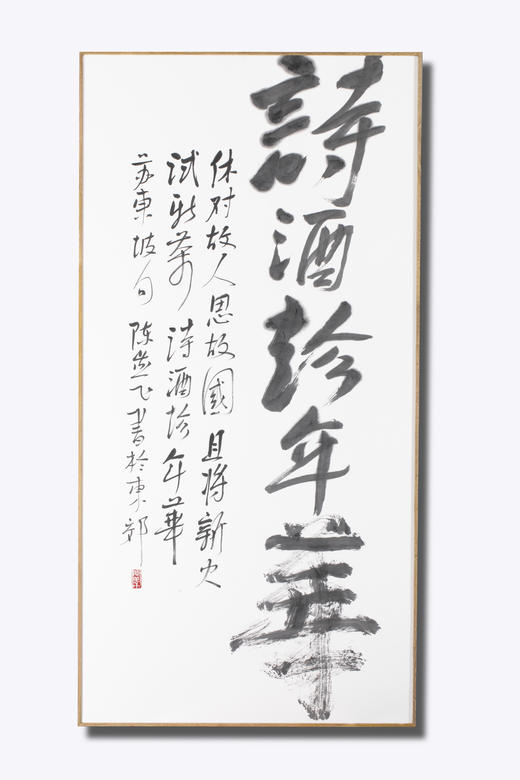 詩酒趁年華
休对故人思故國 且将新火
試新茶 詩酒趁年華
苏東坡句 陈 飞書於東